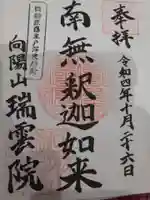 奉拝
令和四年十月二十六日
南無釈迦如来
向陽山 瑞雲院